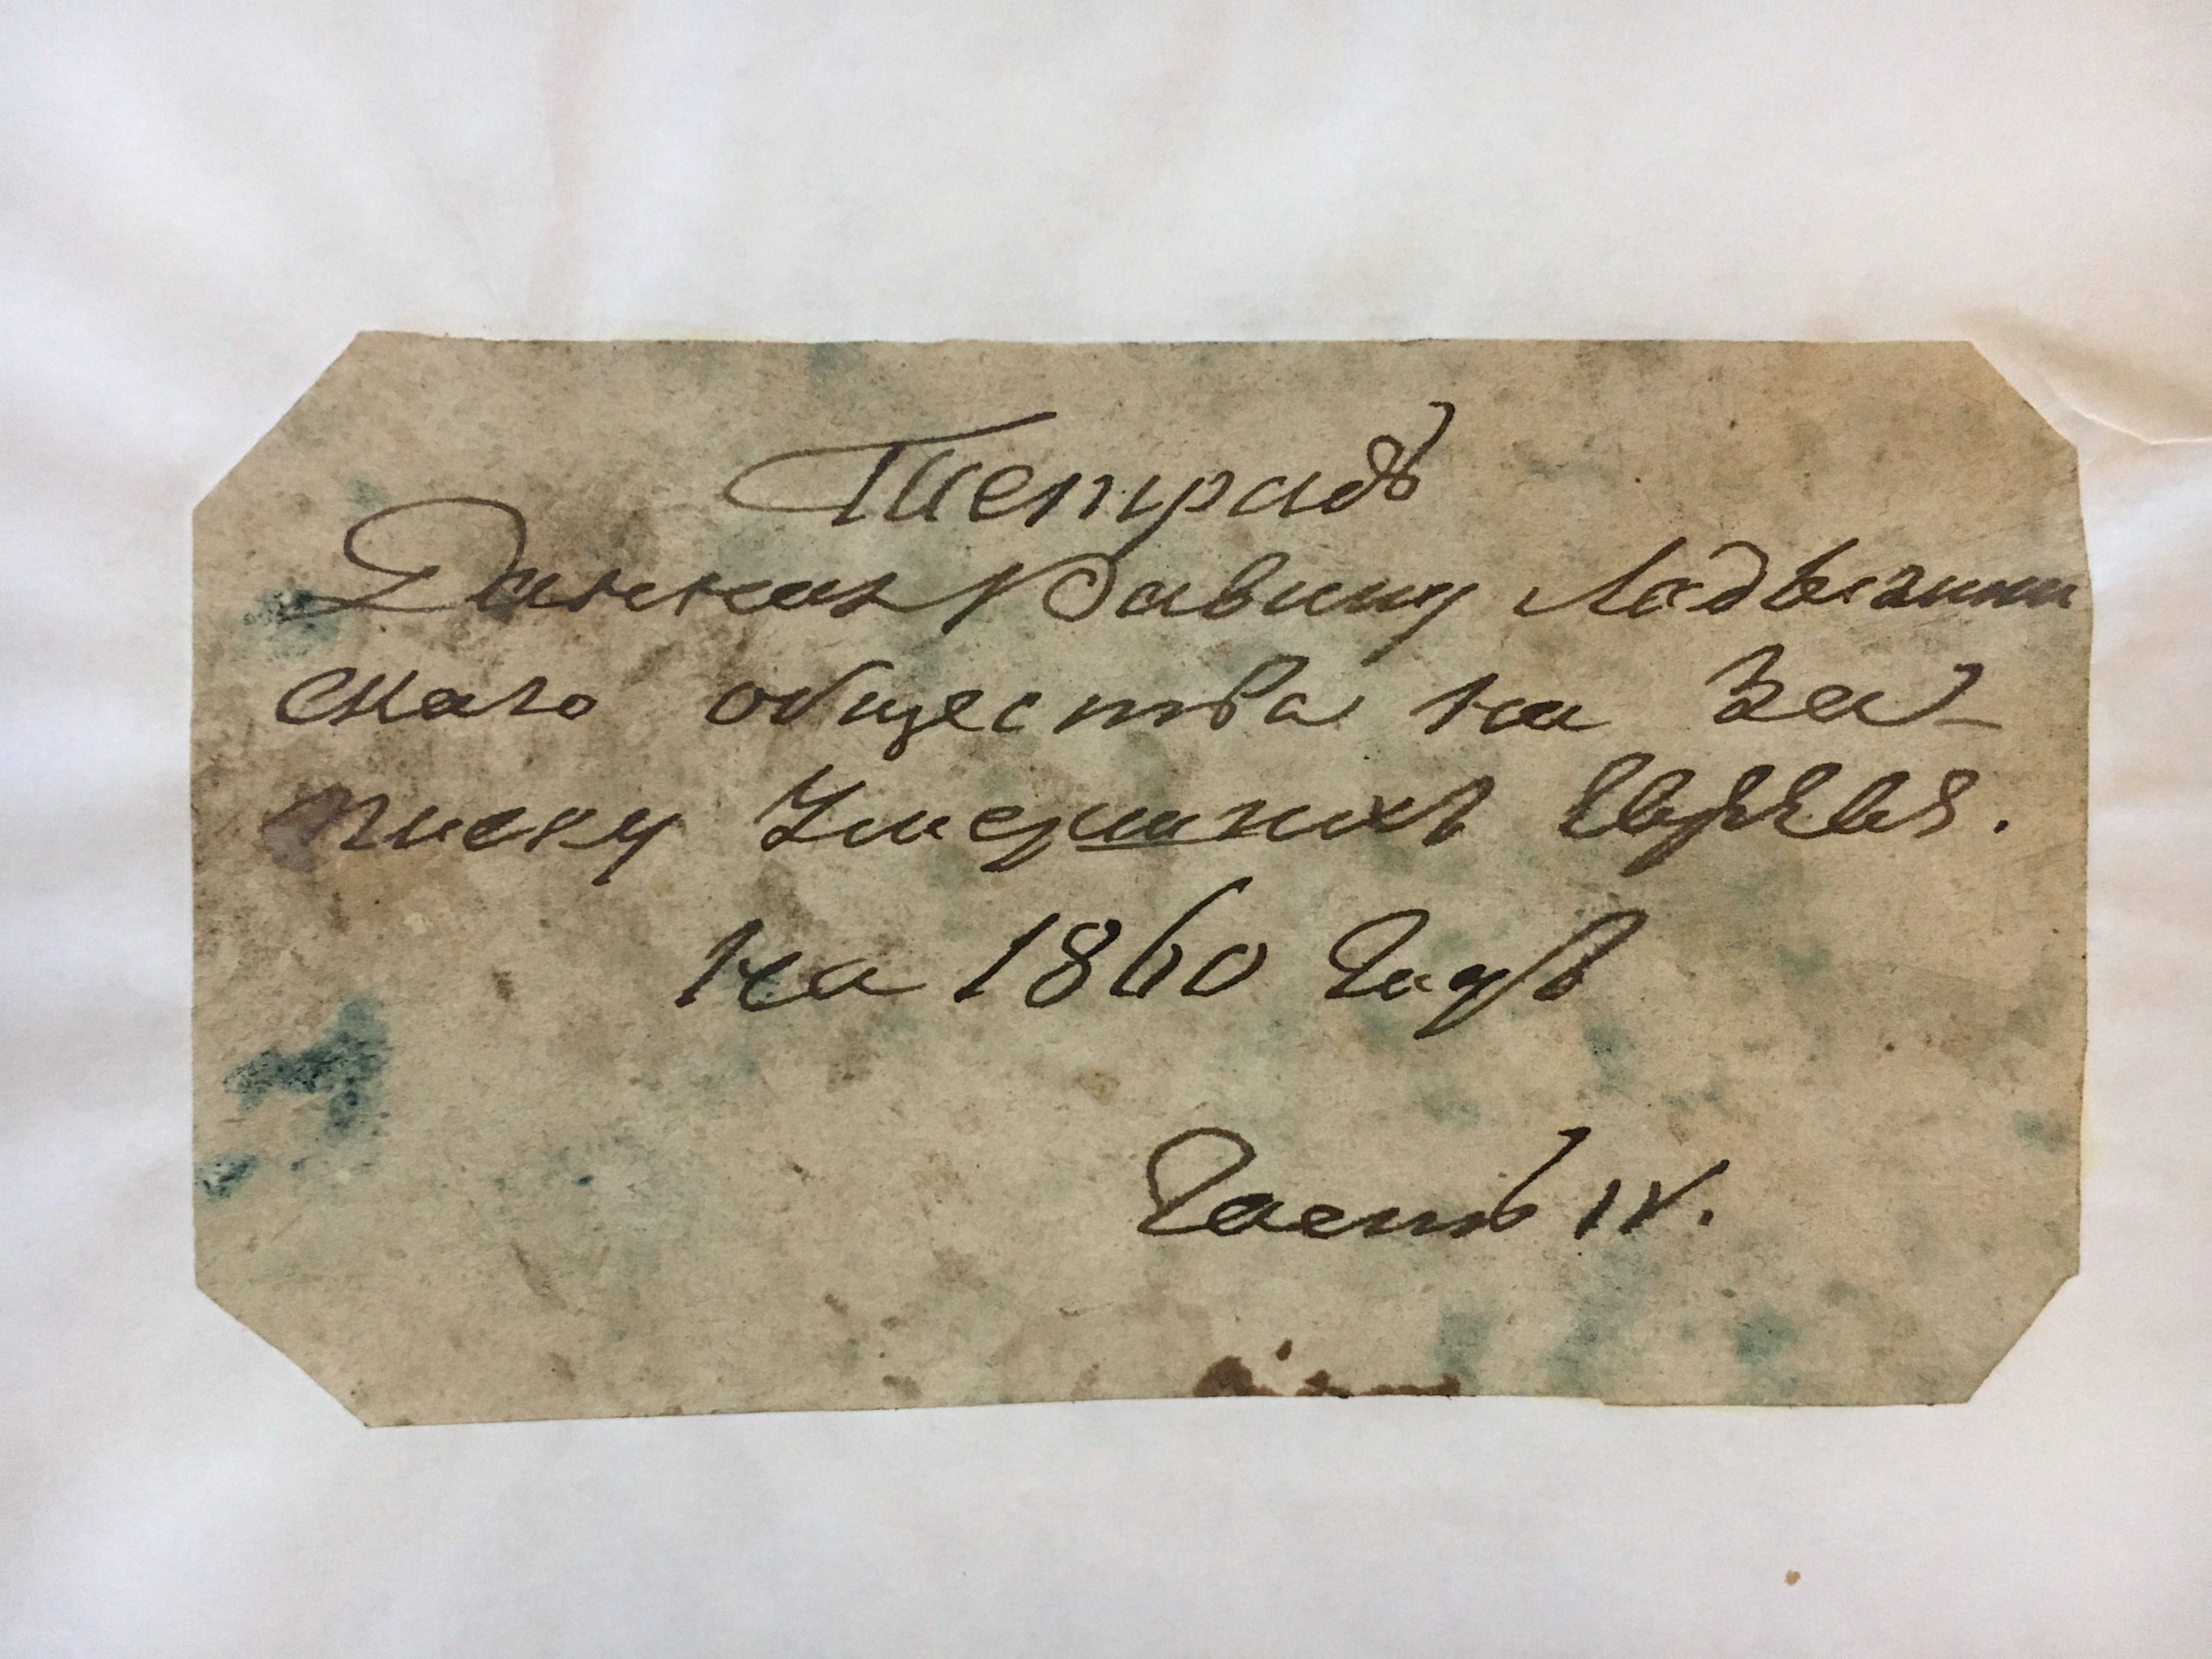 Тетрадь
Данная Равину Ладыжин
скаго общества на За-
писку Умершихъ Евреев.
на 1860 Годъ
Часть IV.